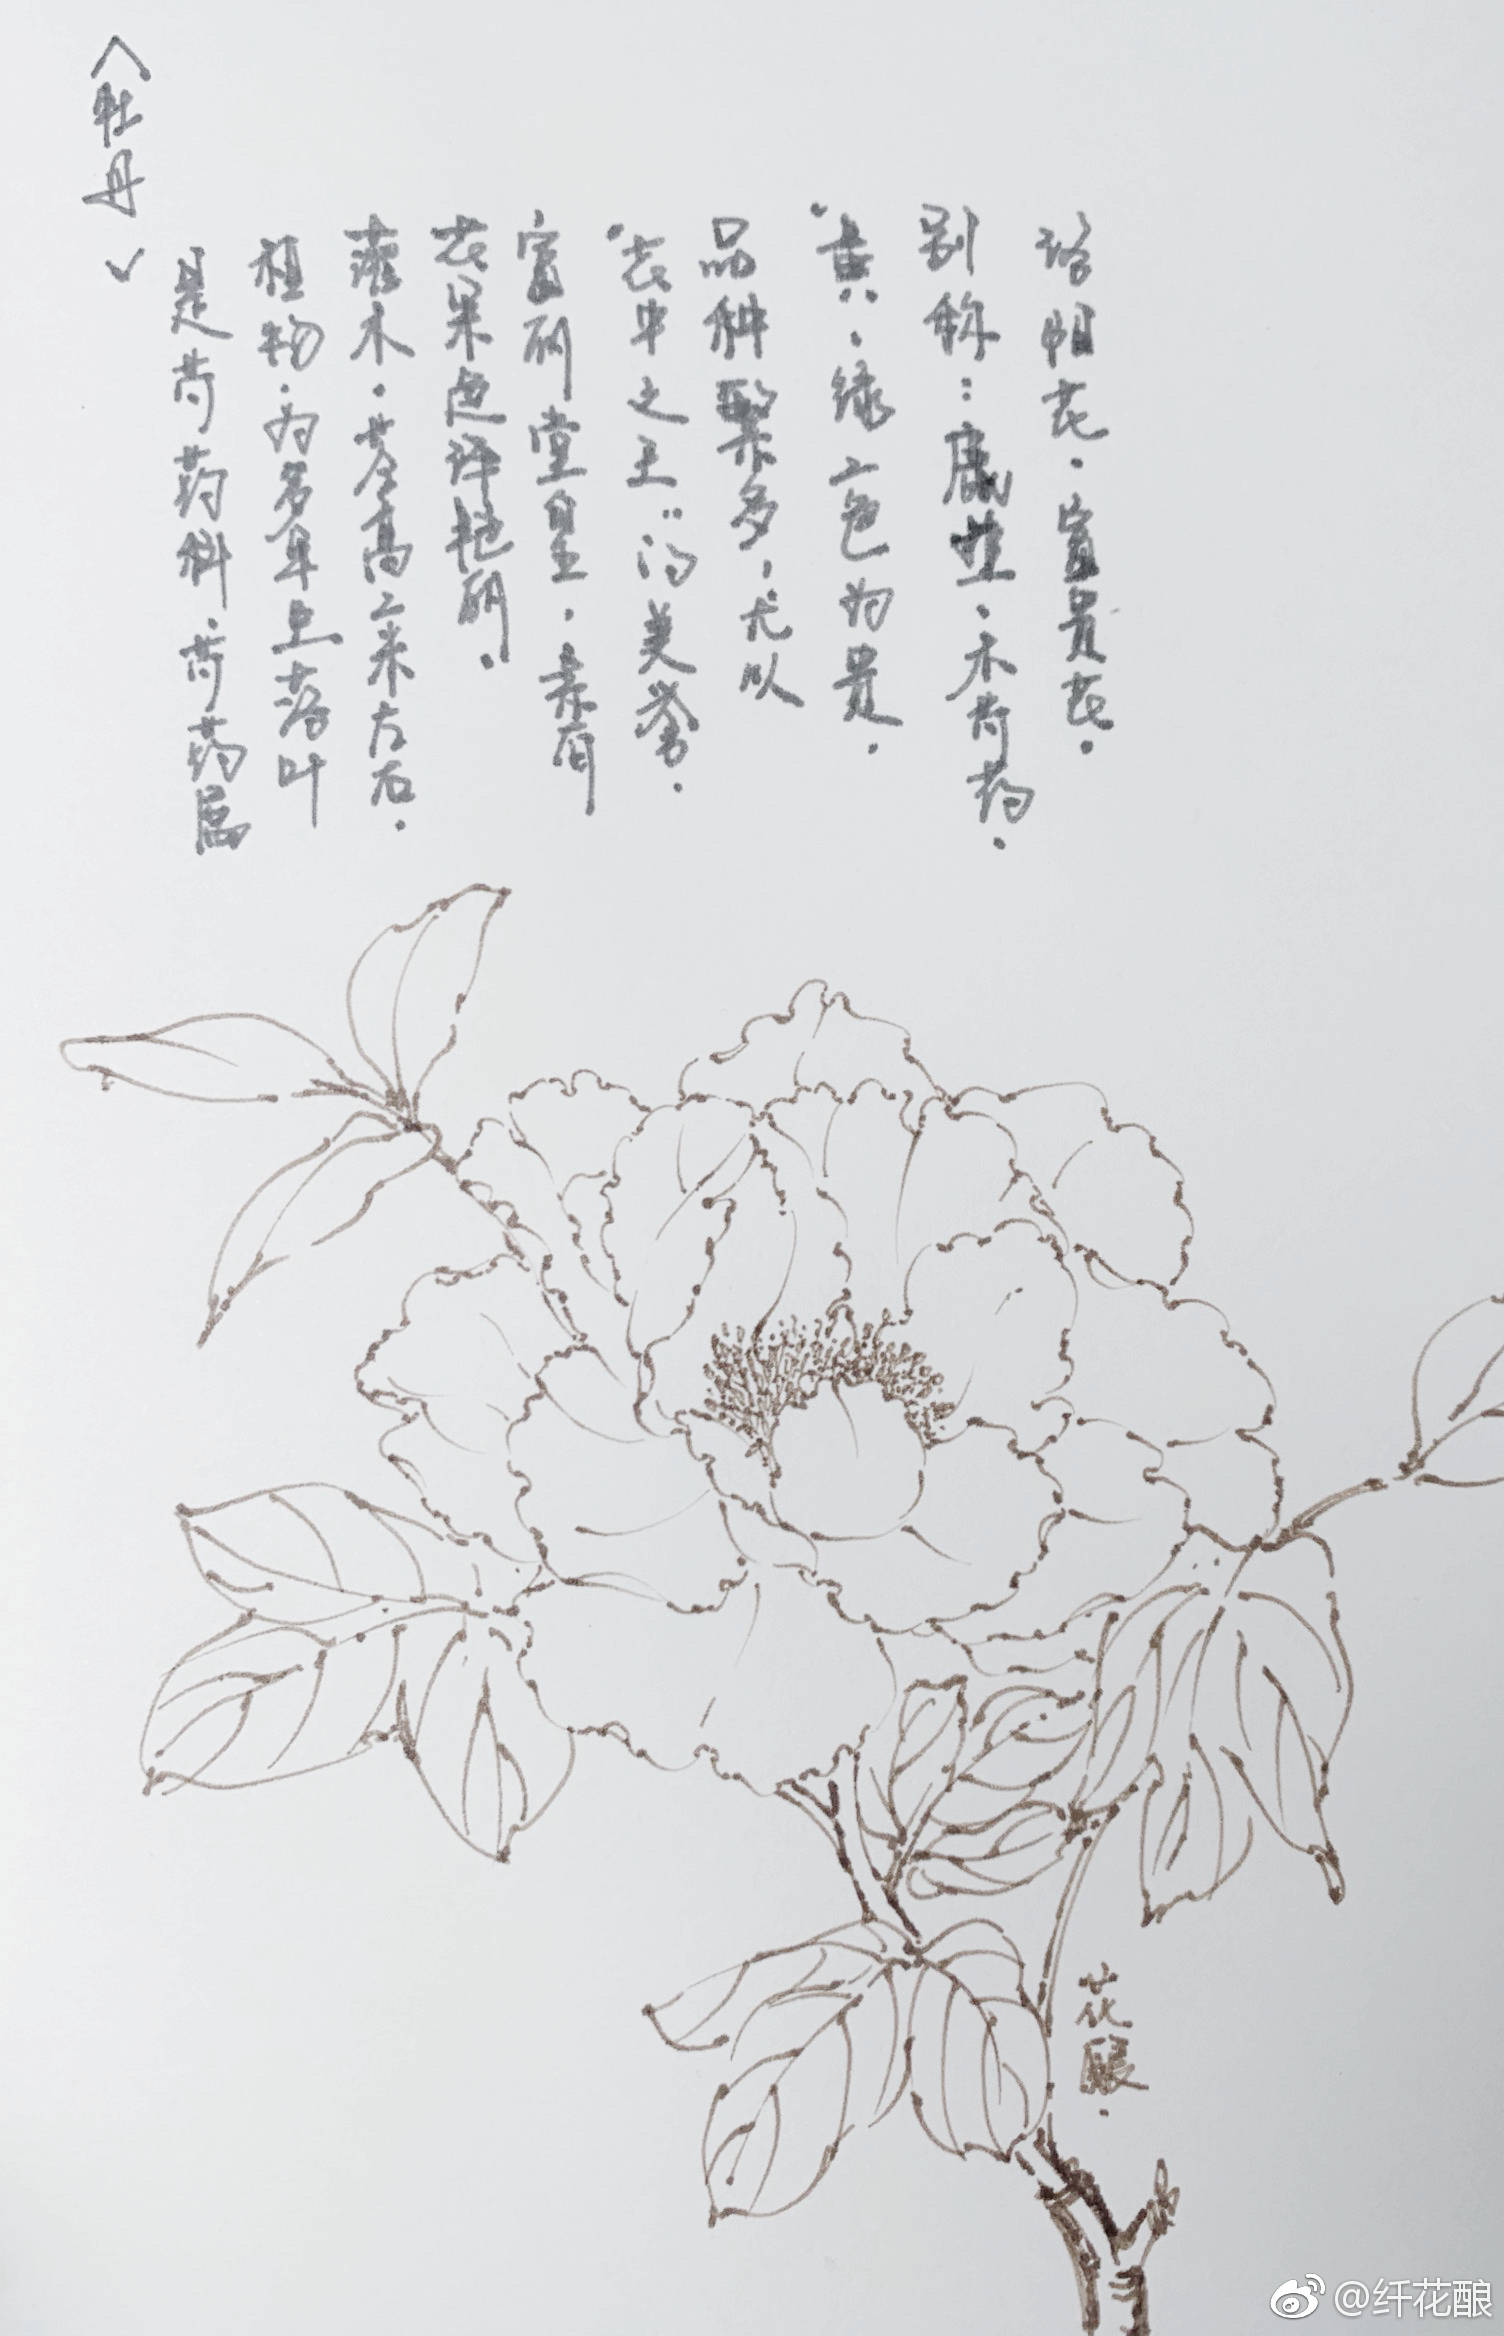 〈牡丹〉
是芍药科、芍药属
植物，为多年生落叶
灌木，茎高二米左右。
花果色泽艳丽，
富丽堂皇，素有
“花中之王”的美誉。
品种繁多，尤以
“黄、绿二色为贵。
别称：鹿韭、木芍药、
洛阳花、富贵花。
花酿.
@纤花酿